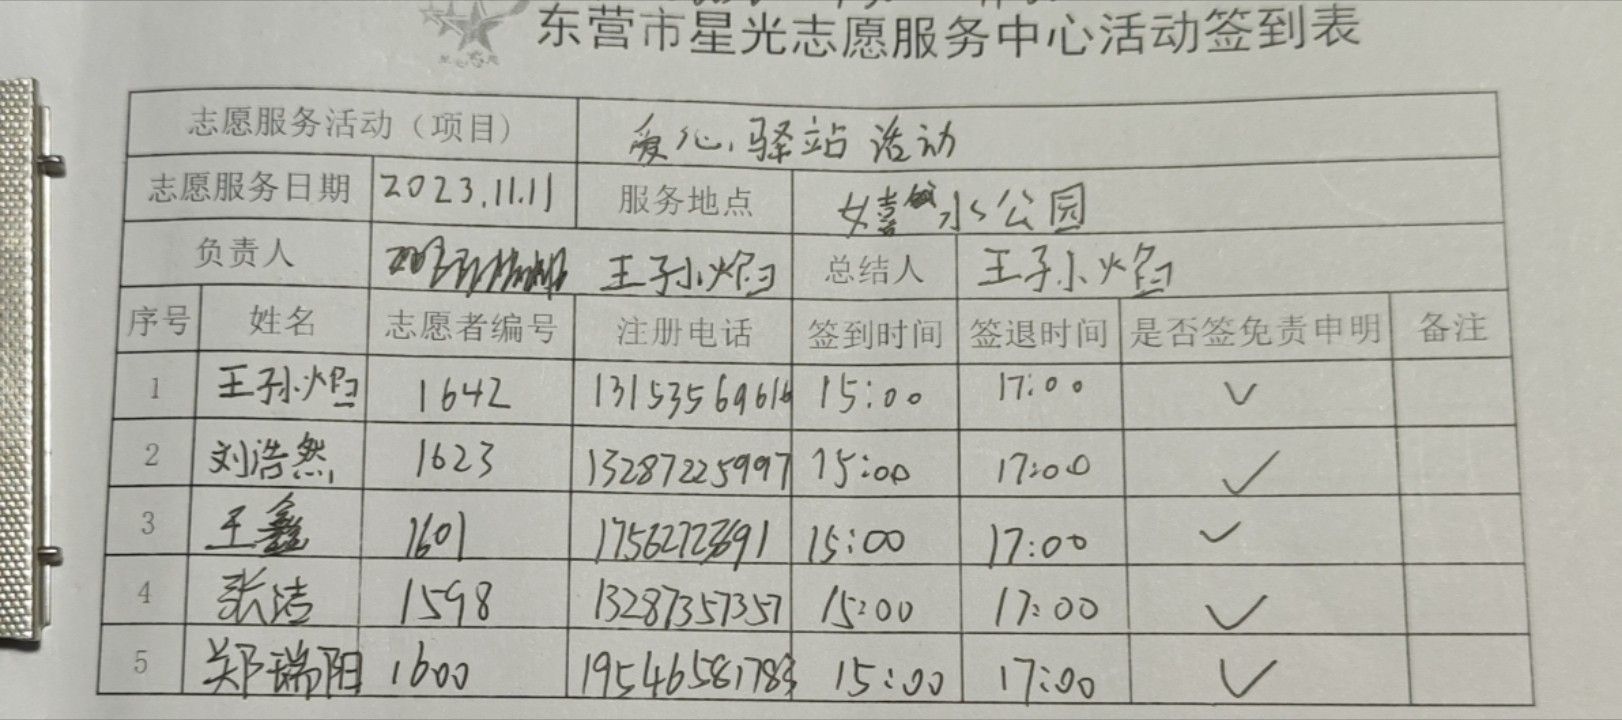 东营市星光志愿服务中心活动签到表
志愿服务活动（项目） 爱心驿站活动
志愿服务日期 2023.11.11 服务地点 水公园
负责人 王子孙焰 总结人 王子孙焰
序号 姓名 志愿者编号 注册电话 签到时间 签退时间 是否签免责申明 备注
1 王孙焰 1642 13153569616 15:00 17:00 ✓
2 刘浩然 1623 13287225997 15:00 17:00 ✓
3 王鑫 1601 17562723691 15:00 17:00 ✓
4 张洁 1598 13287357357 15:00 17:00 ✓
5 郑瑞阳 1600 19546581783 15:00 17:00 ✓